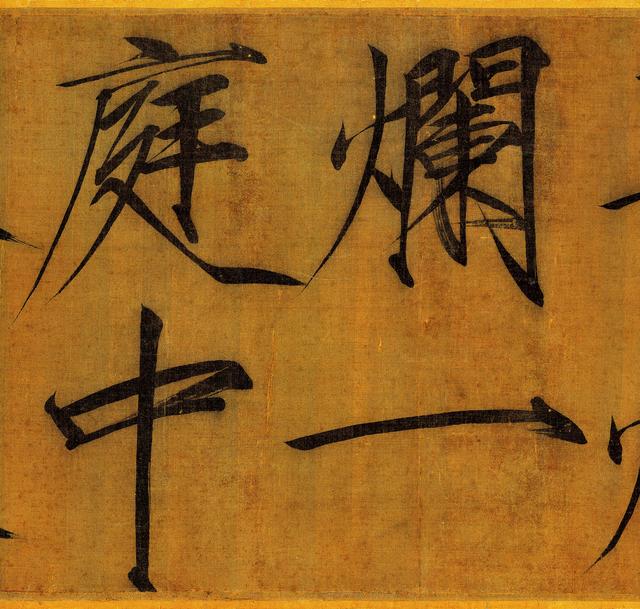 爛一
庭中